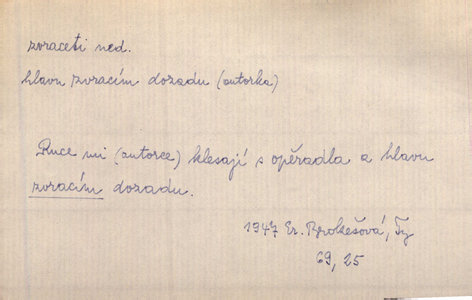 zvraceti ned.
hlavu zvracím dozadu (autorka)
Ruce mi (autorce) klesají s opěradla a hlavu
zvracím dozadu.
1947 Er. Prokešová, Ty
69, 25